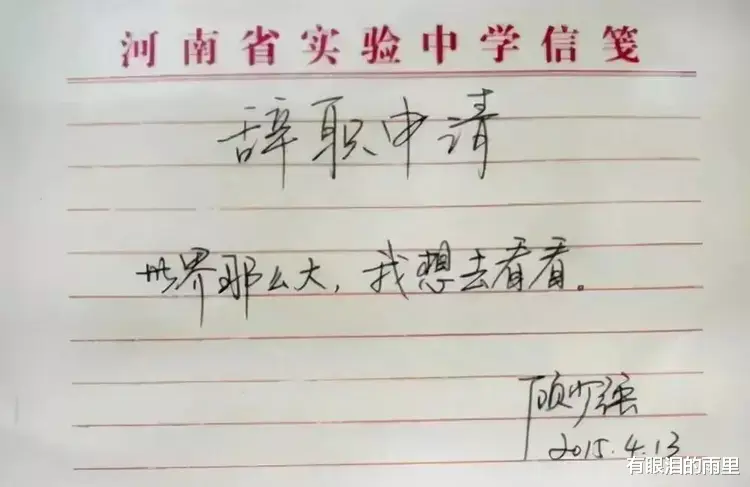 河南省实验中学信笺
辞职申请
世界那么大，我想去看看。
顾少强
2015.4.13
有眼泪的雨里